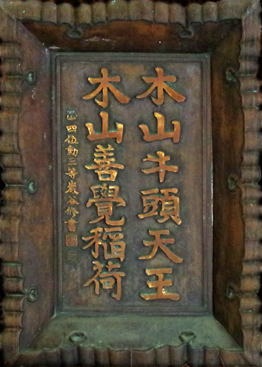 木山牛頭天王
木山善覺稲荷
正四位勲三等巌谷修書